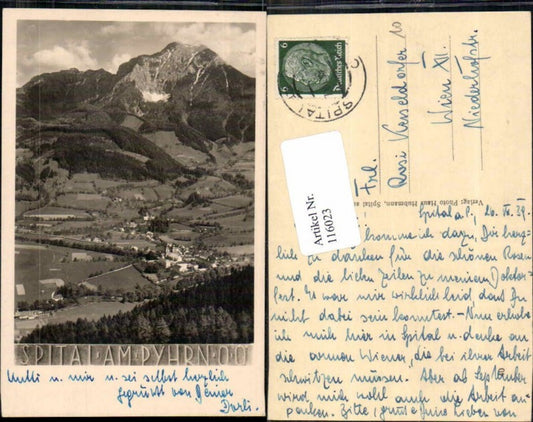 SPITAL·AM·PYHRN·O·Ö
Mutti u. mir u. sei selbst herzlich
gegrüßt von Deiner
Dorli.
6 6
Deutsches Reich
SPITAL
Frl.
Rosi
Wien XII.
Niederhofstr.
10
Verlag: Photo Hans Hubmann, Spital a
Artikel Nr.
116023
Spital a. P., 26. VI. 39.
komme ich dazu, Dir herz-
lich zu danken für die schönen Rosen
und die lieben Zeilen zu meinem Doktor-
fest. Es war mir wirklich leid, dass Du
nicht dabei sein konntest. – Nun erhole
ich mich hier in Spital u. denke an
die armen Wiener, die bei ihrer Arbeit
schwitzen müssen. Aber ab September
wird mich wohl auch die Arbeit an-
packen. Bitte, grüße Deine lieben